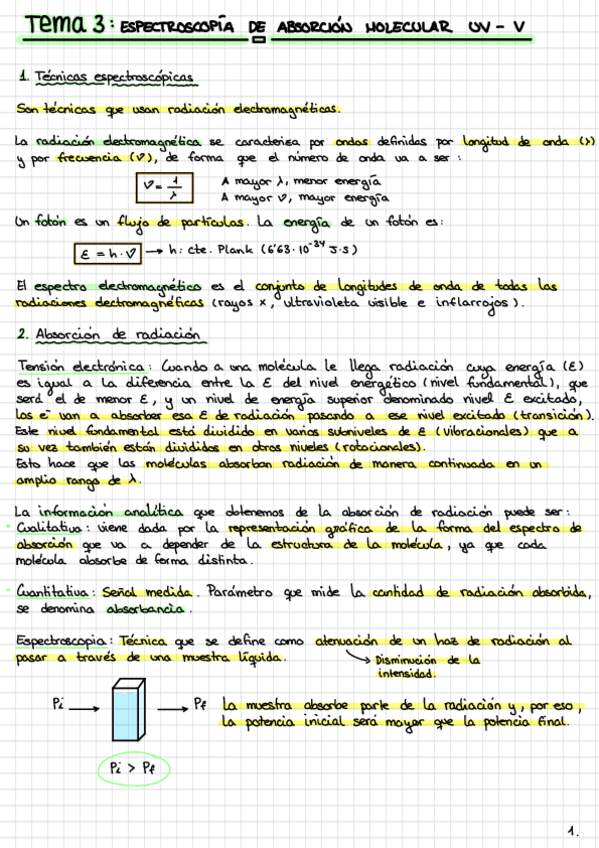 Tema 3: ESPECTROSCOPÍA DE ABSORCIÓN MOLECULAR UV - V
1. Técnicas espectroscópicas
Son técnicas que usan radiación electromagnéticas.
La radiación electromagnética se caracteriza por ondas definidas por longitud de onda (λ)
y por frecuencia (V), de forma que el número de onda va a ser:
V = 1/λ
A mayor λ, menor energía
A mayor V, mayor energía
Un fotón es un flujo de partículas. La energía de un fotón es:
E = h·V → h: cte. Plank (6'63·10⁻³⁴ J·s)
El espectro electromagnético es el conjunto de longitudes de onda de todas las
radiaciones electromagnéticas (rayos x, ultravioleta visible e inflarrojos).
2. Absorción de radiación
Tensión electrónica: Cuando a una molécula le llega radiación cuya energía (E)
es igual a la diferencia entre la E del nivel energético (nivel fundamental), que
será el de menor E, y un nivel de energía superior denominado nivel E excitado,
los e⁻ van a absorber esa E de radiación pasando a ese nivel excitado (transición).
Este nivel fundamental está dividido en varios subniveles de E (vibracionales) que a
su vez también están divididos en otros niveles (rotacionales).
Esto hace que las moléculas absorban radiación de manera continuada en un
amplio rango de λ.
La información analítica que obtenemos de la absorción de radiación puede ser:
· Cualitativa: viene dada por la representación gráfica de la forma del espectro de
absorción que va a depender de la estructura de la molécula, ya que cada
molécula absorbe de forma distinta.
· Cuantitativa: Señal medida. Parámetro que mide la cantidad de radiación absorbida,
se denomina absorbancia.
Espectroscopia: Técnica que se define como atenuación de un haz de radiación al
pasar a través de una muestra líquida.
→ Disminución de la
intensidad.
Pi → → Pf
La muestra absorbe parte de la radiación y, por eso,
la potencia inicial será mayor que la potencia final.
Pi > Pf
1.